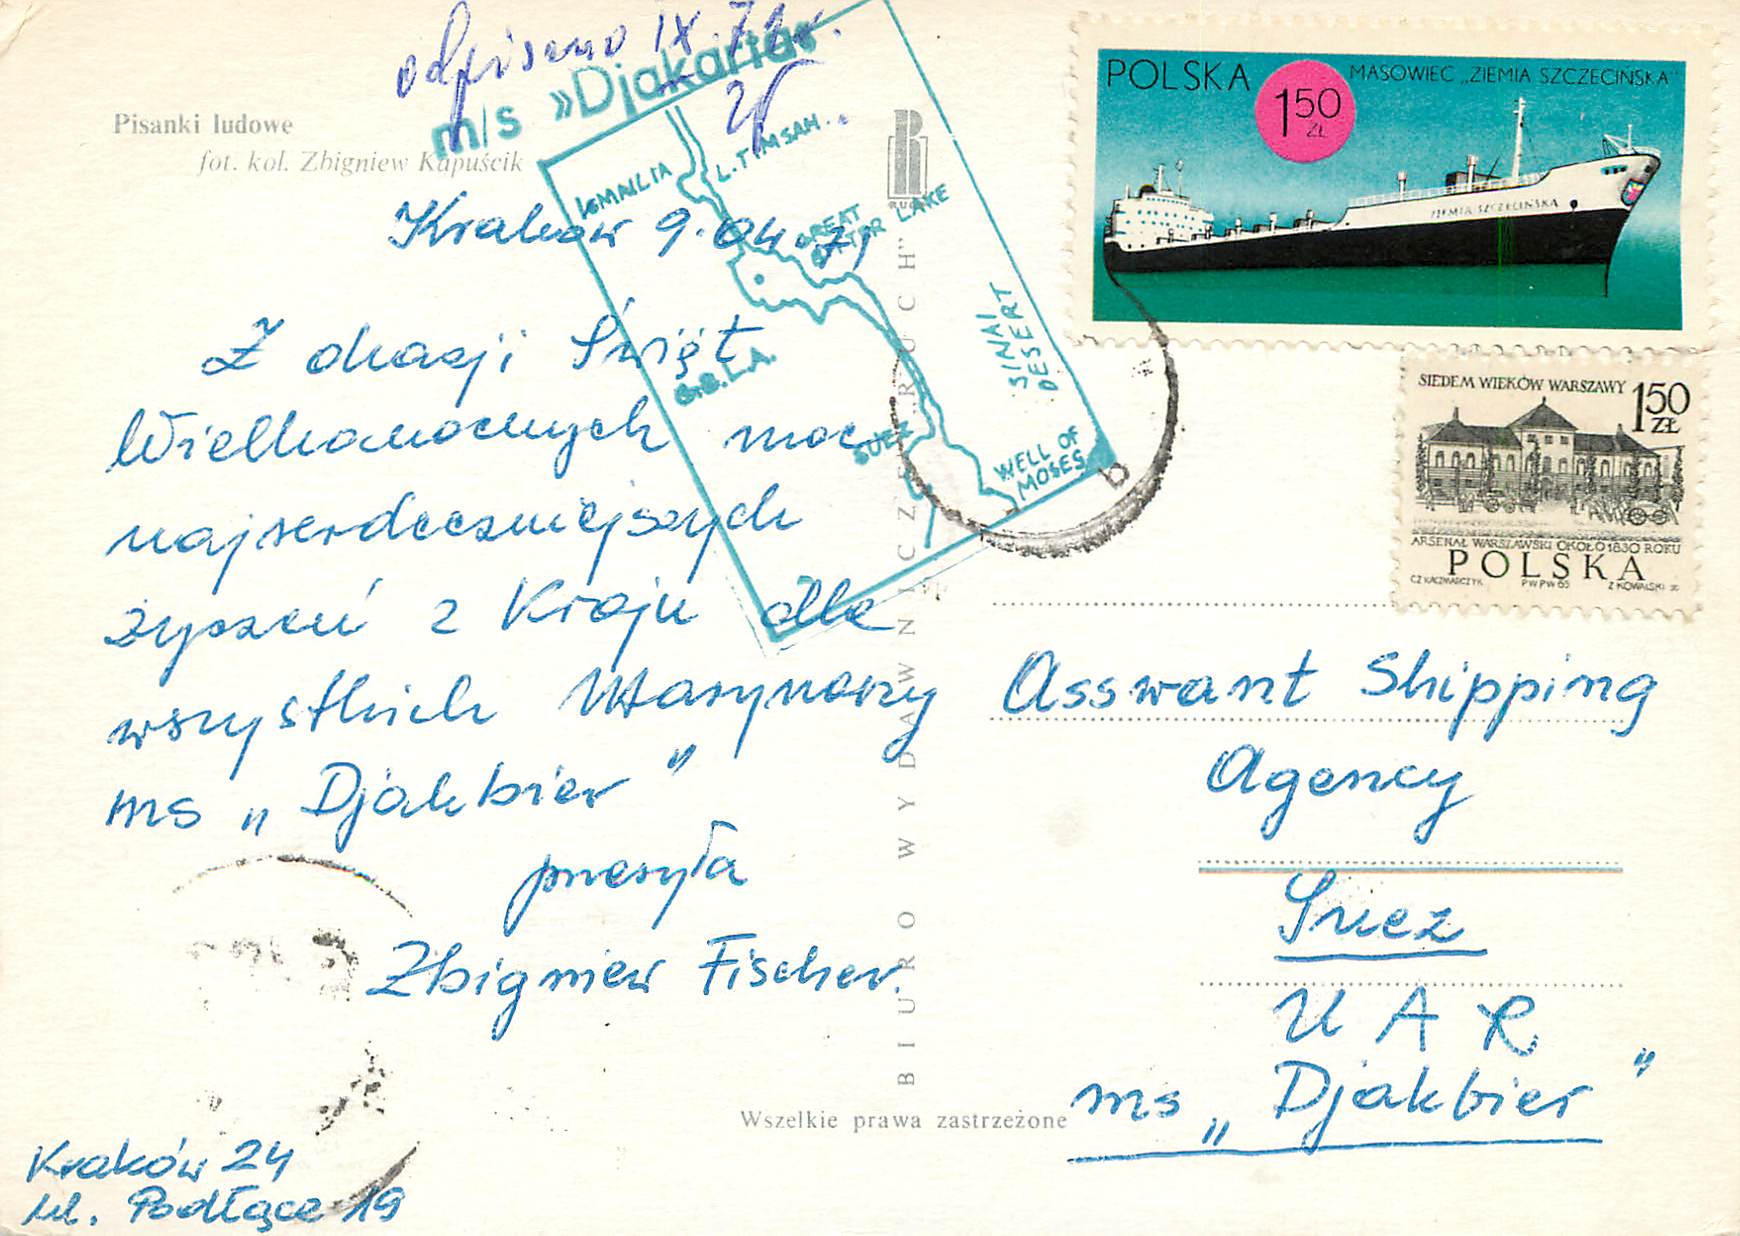 odpisano IX.71r.
m/s »Djakarta«
Pisanki ludowe
fot. kol. Zbigniew Kapuścik
RUCH
ISMAILIA
L. TIMSAH
GREAT
BITTER LAKE
G.B.L.A.
SINAI
DESERT
SUEZ
WELL OF
MOSES
Kraków 9.04.71
Z okazji Świąt
Wielkanocnych moc
najserdeczniejszych
życzeń z Kraju dla
wszystkich Marynarzy
ms „Djakbier"
przesyła
Zbigniew Fischer.
Kraków 24
ul. Podłącze 19
BIURO WYDAWNICZE „RUCH"
Wszelkie prawa zastrzeżone
POLSKA
150
ZŁ
MASOWIEC „ZIEMIA SZCZECIŃSKA"
ZIEMIA SZCZECIŃSKA
SIEDEM WIEKÓW WARSZAWY
150
ZŁ
ARSENAŁ WARSZAWSKI OKOŁO 1830 ROKU
POLSKA
CZ KACZMARCZYK PWPW 65 Z KOWALSKI
b
Asswant Shipping
Agency
Suez
U A R
ms „Djakbier"